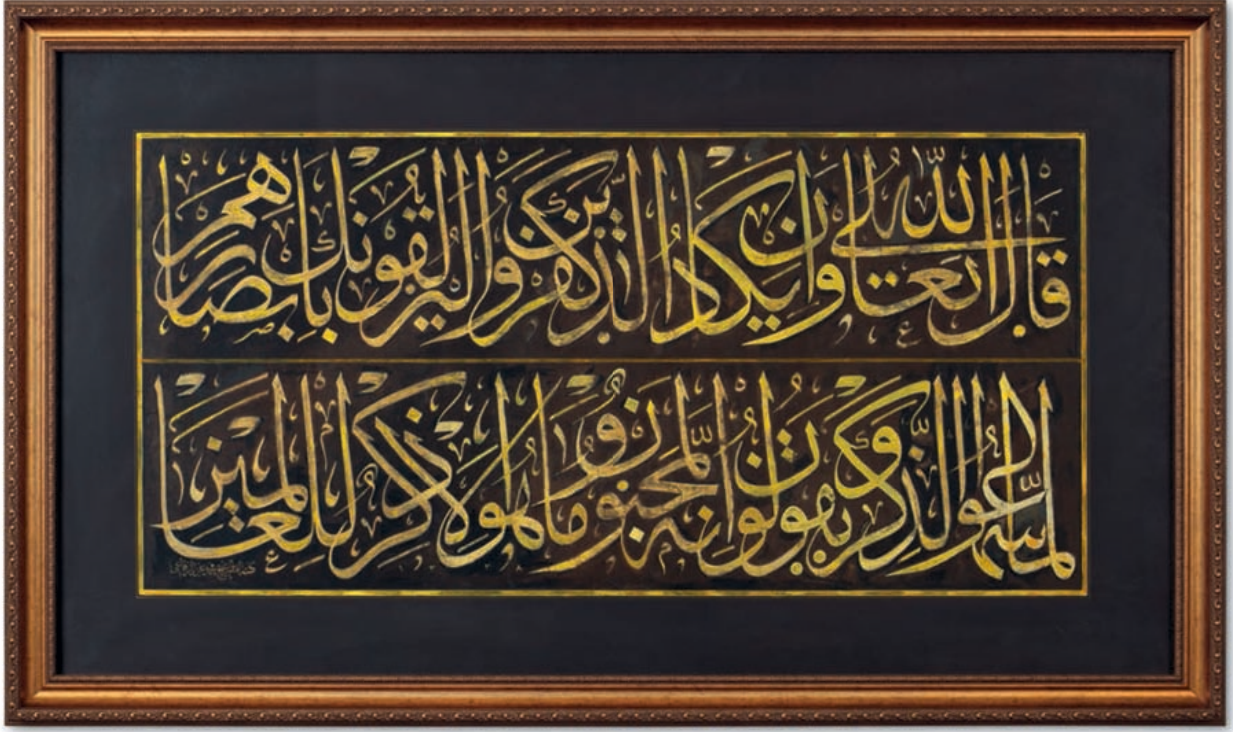 قال الله تعالى وان يكاد الذين كفروا ليزلقونك بابصارهم
لما سمعوا الذكر ويقولون انه لمجنون وما هو الا ذكر للعالمين